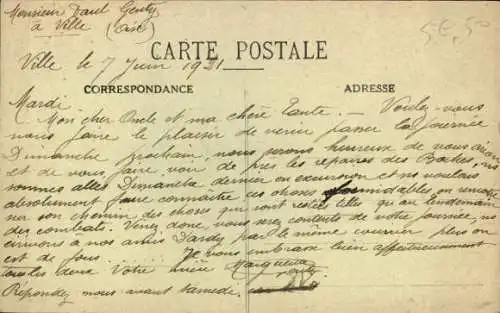 Monsieur Paul Genty
à Ville (Oise)
5€,50
CARTE POSTALE
Ville le 7 Juin 1921
CORRESPONDANCE
ADRESSE
Mardi.
Mon cher Oncle et ma chère Tante. — Voulez-vous
nous faire le plaisir de venir passer la journée
Dimanche prochain, nous serons heureuse de vous avoir
et de vous faire voir de près les repaires des Boches, nous
sommes allés Dimanche dernier en excursion et nous voulons
absolument faire connaître ces choses formidables, on rencontre
sur son chemin des choses qui sont restées telles qu'au lendemain
des combats. Venez donc vous serez contents de votre journée, nous
écrivons à nos amis Dardy par le même courrier plus on
est de fous ..... Je vous embrasse bien affectueusement
tous les deux Votre nièce Marguerite
Genty
Répondez nous avant samedi.